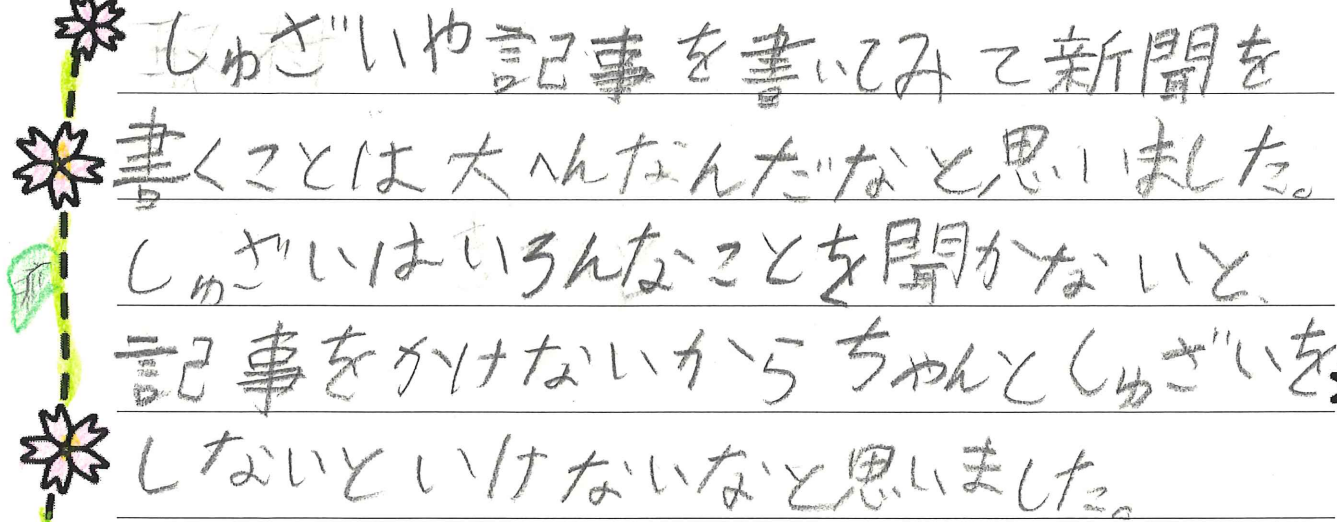 しゅざいや記事を書いてみて新聞を
書くことは大へんなんだなと思いました。
しゅざいはいろんなことを聞かないと、
記事をかけないからちゃんとしゅざいを
しないといけないなと思いました。